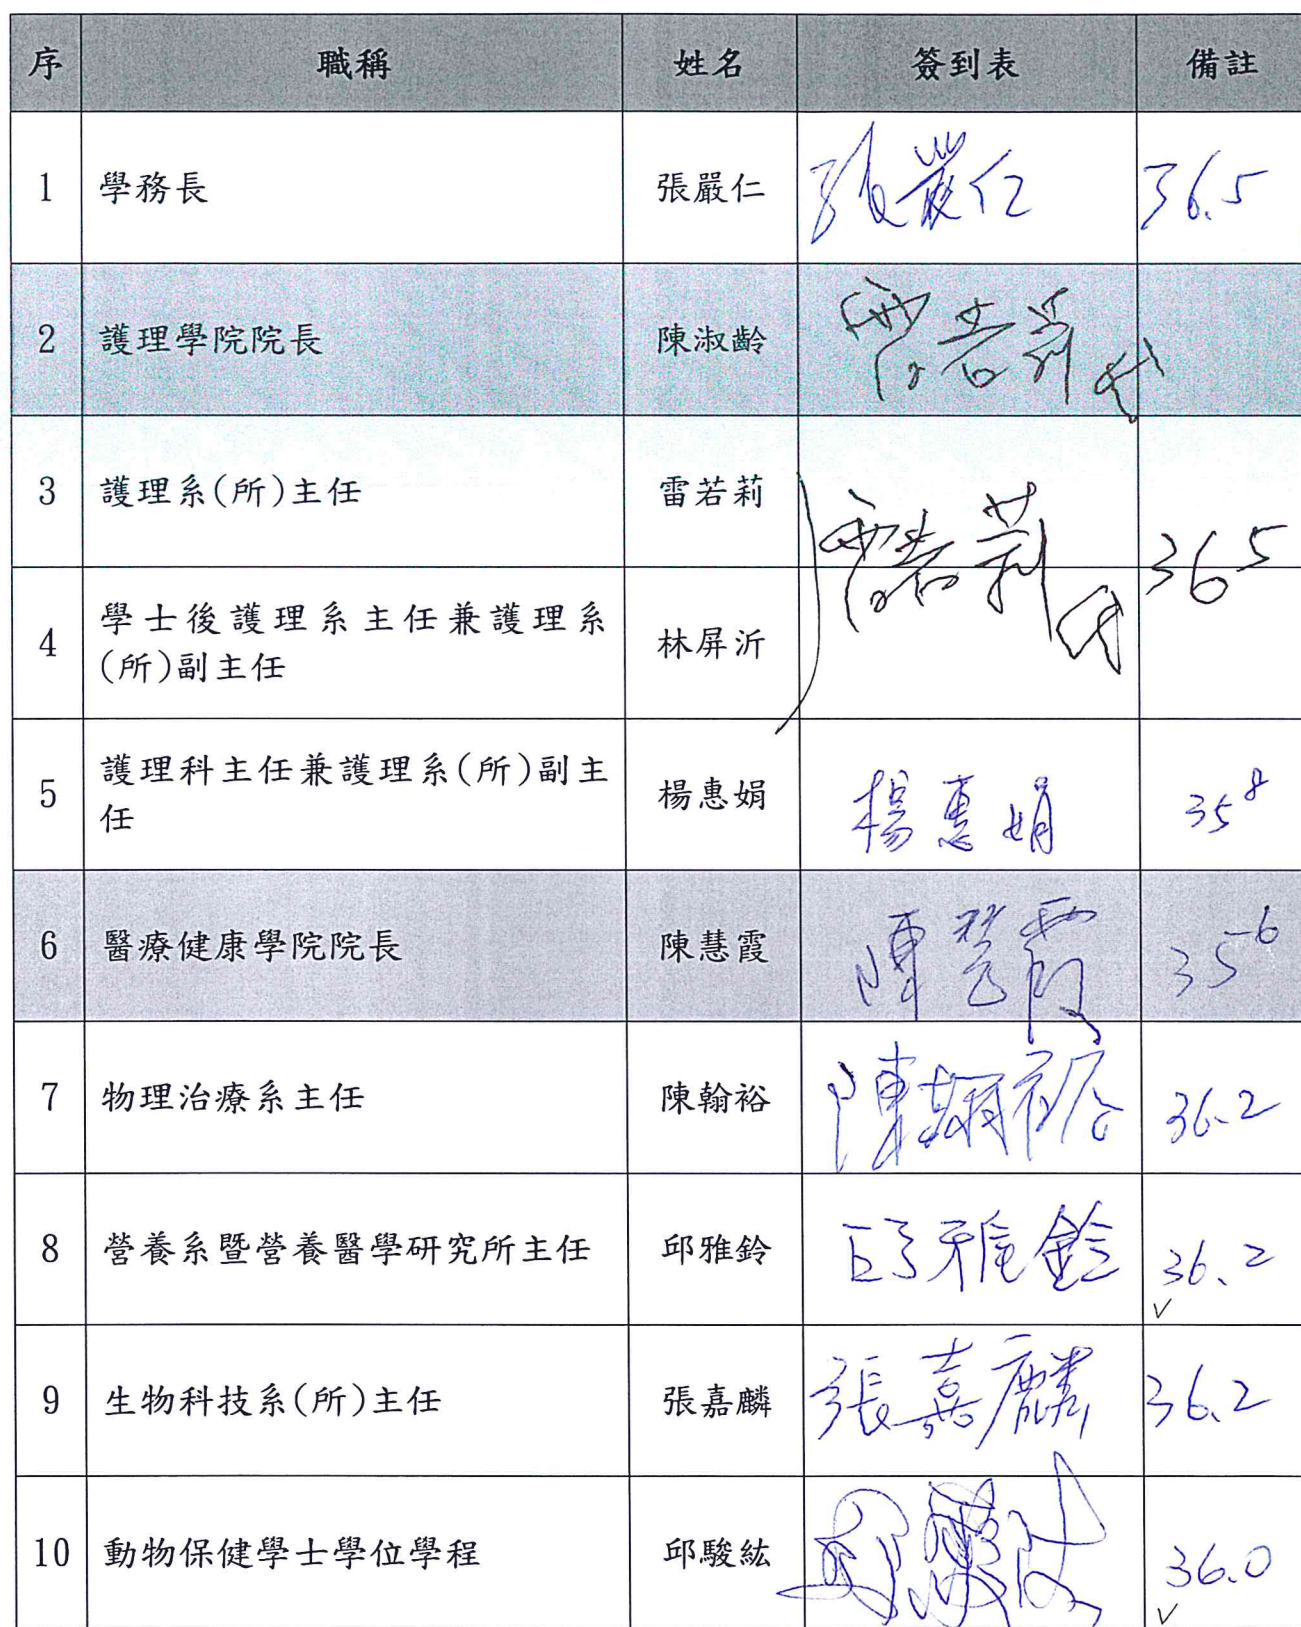 序 職稱 姓名 簽到表 備註
1 學務長 張嚴仁 張嚴仁 36.5
2 護理學院院長 陳淑齡 雷若莉代
3 護理系(所)主任 雷若莉 雷若莉代 365
4 學士後護理系主任兼護理系
(所)副主任 林屏沂
5 護理科主任兼護理系(所)副主
任 楊惠娟 楊惠娟 358
6 醫療健康學院院長 陳慧霞 陳慧霞 356
7 物理治療系主任 陳翰裕 陳翰裕 36.2
8 營養系暨營養醫學研究所主任 邱雅鈴 邱雅鈴 36.2
✓
9 生物科技系(所)主任 張嘉麟 張嘉麟 36.2
10 動物保健學士學位學程 邱駿紘 36.0
✓